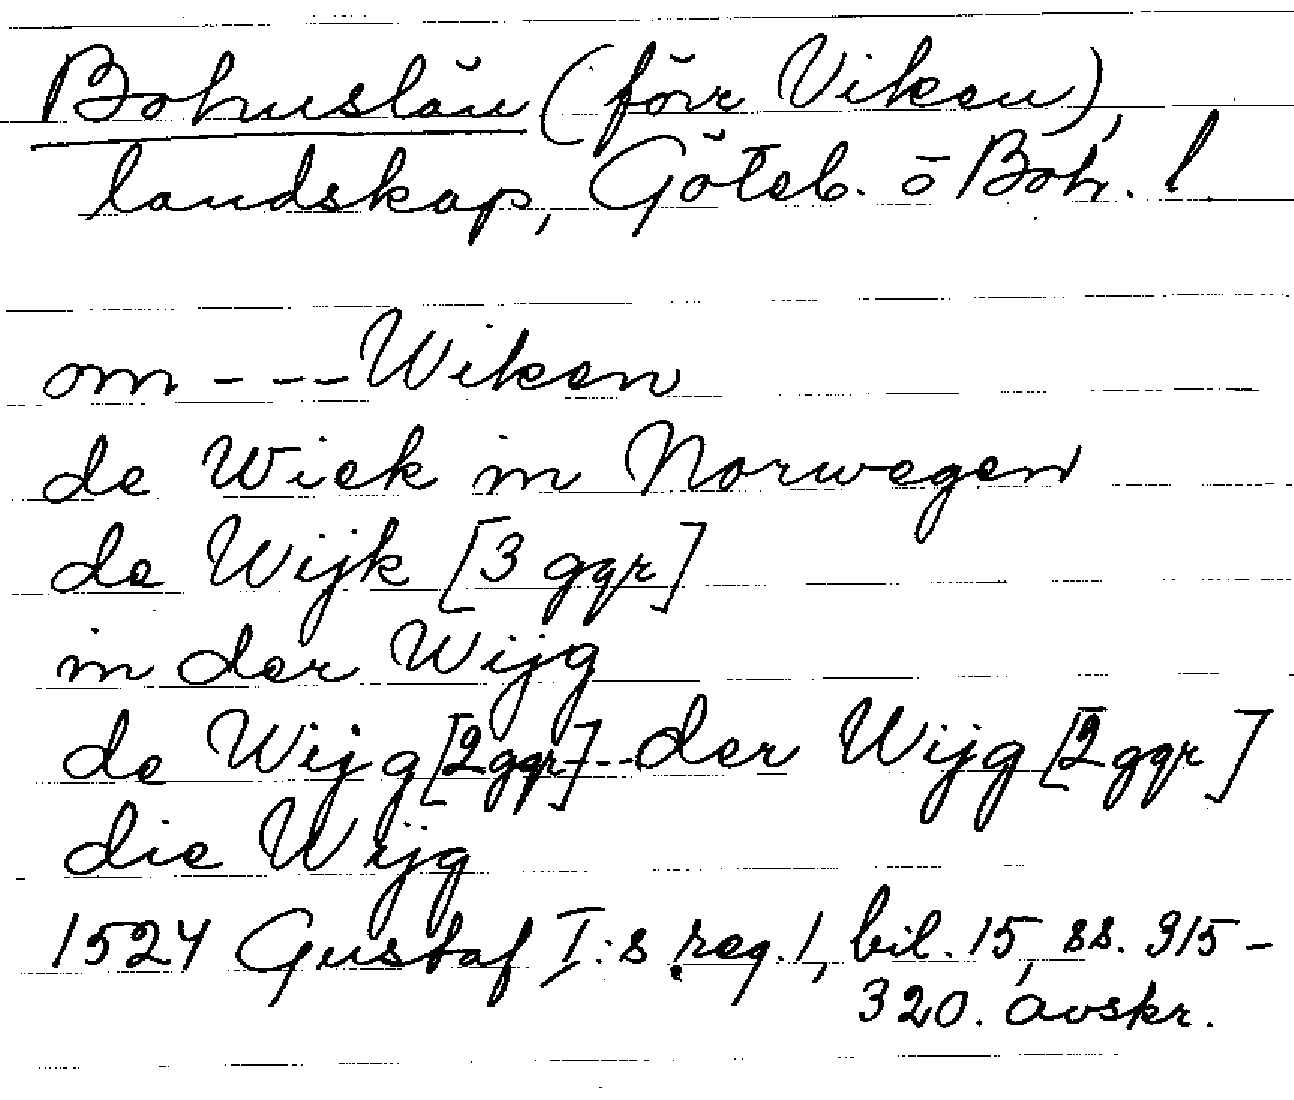 Bohuslän (förr Viken),
landskap, Göteb. o Boh. l.
om - - - Wiken
de Wiek in Norwegen
de Wijk [3 ggr]
in der Wijg
de Wijg [2 ggr] - - - der Wijg [2 ggr]
die Wijg
1524 Gustaf I:s reg. 1, bil. 15, ss. 315-
320. avskr.